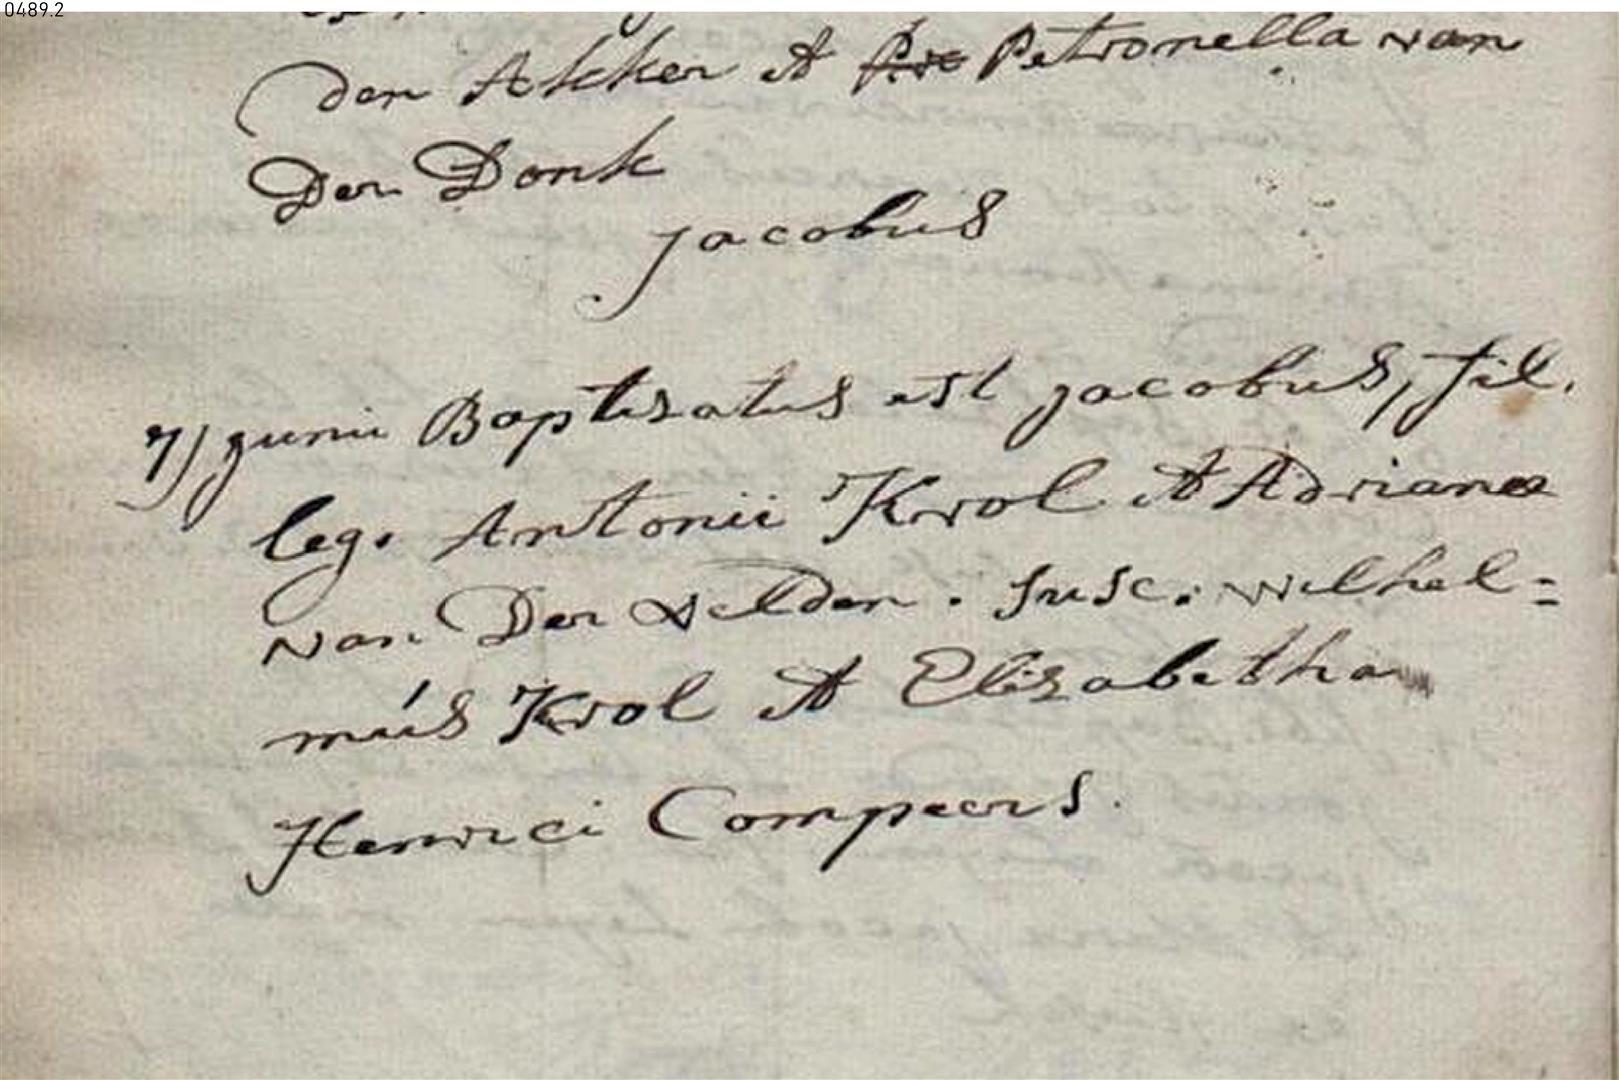 0489.2
den Akker et P̶e̶t̶ Petronella van
Der Donk
jacobus
7) junii Baptisatus est jacobus, fil.
leg. Antonii Krol et Adrianae
van Der velden. Susc. wilhel=
mús Krol et Elisabetha
Henrici Compeers.